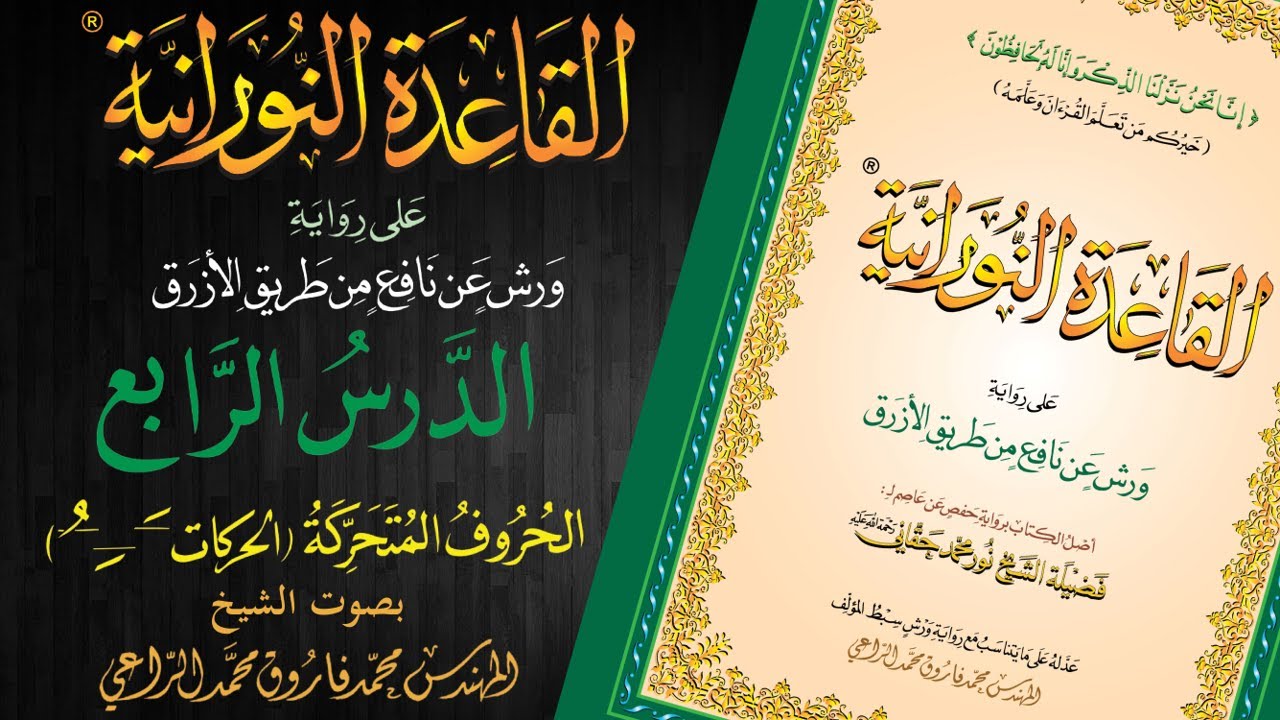 القَاعِدَة النُّورَانِيَّة ®
عَلى رِوَايَةِ
وَرش عَن نَافِعٍ مِن طَرِيقِ الأزرَق
الدَّرسُ الرَّابع
الحُرُوفُ المُتَحَرِّكَةُ (الحركات ـَ ـِ ـُ)
بصوت الشيخ
المهندس محمّد فاروق محمَّد الرّاعي
﴿ إِنَّا نَحْنُ نَزَّلْنَا الذِّكْرَ وَإِنَّا لَهُ لَحَافِظُونَ ﴾
( خَيرُكُم مَن تَعَلَّمَ القُرْءَانَ وَعَلَّمَهُ )
القَاعِدَة النُّورَانِيَّة ®
عَلى رِوَايَةِ
وَرش عَن نَافِعٍ مِن طَرِيقِ الأزرَق
أصلُ الكِتَابِ بروَايةِ حَفص عَن عَاصِم لِـ:
فَضِيلَة الشَّيخ نُور محمد حقَّاني رحمة الله عليه
عَدَّلهُ عَلَى مَا يَتَنَاسَبُ مَع رِوَايَةِ وَرْشٍ سِبْطُ المؤلِّف
المهندس محمّد فاروق محمَّد الرّاعي